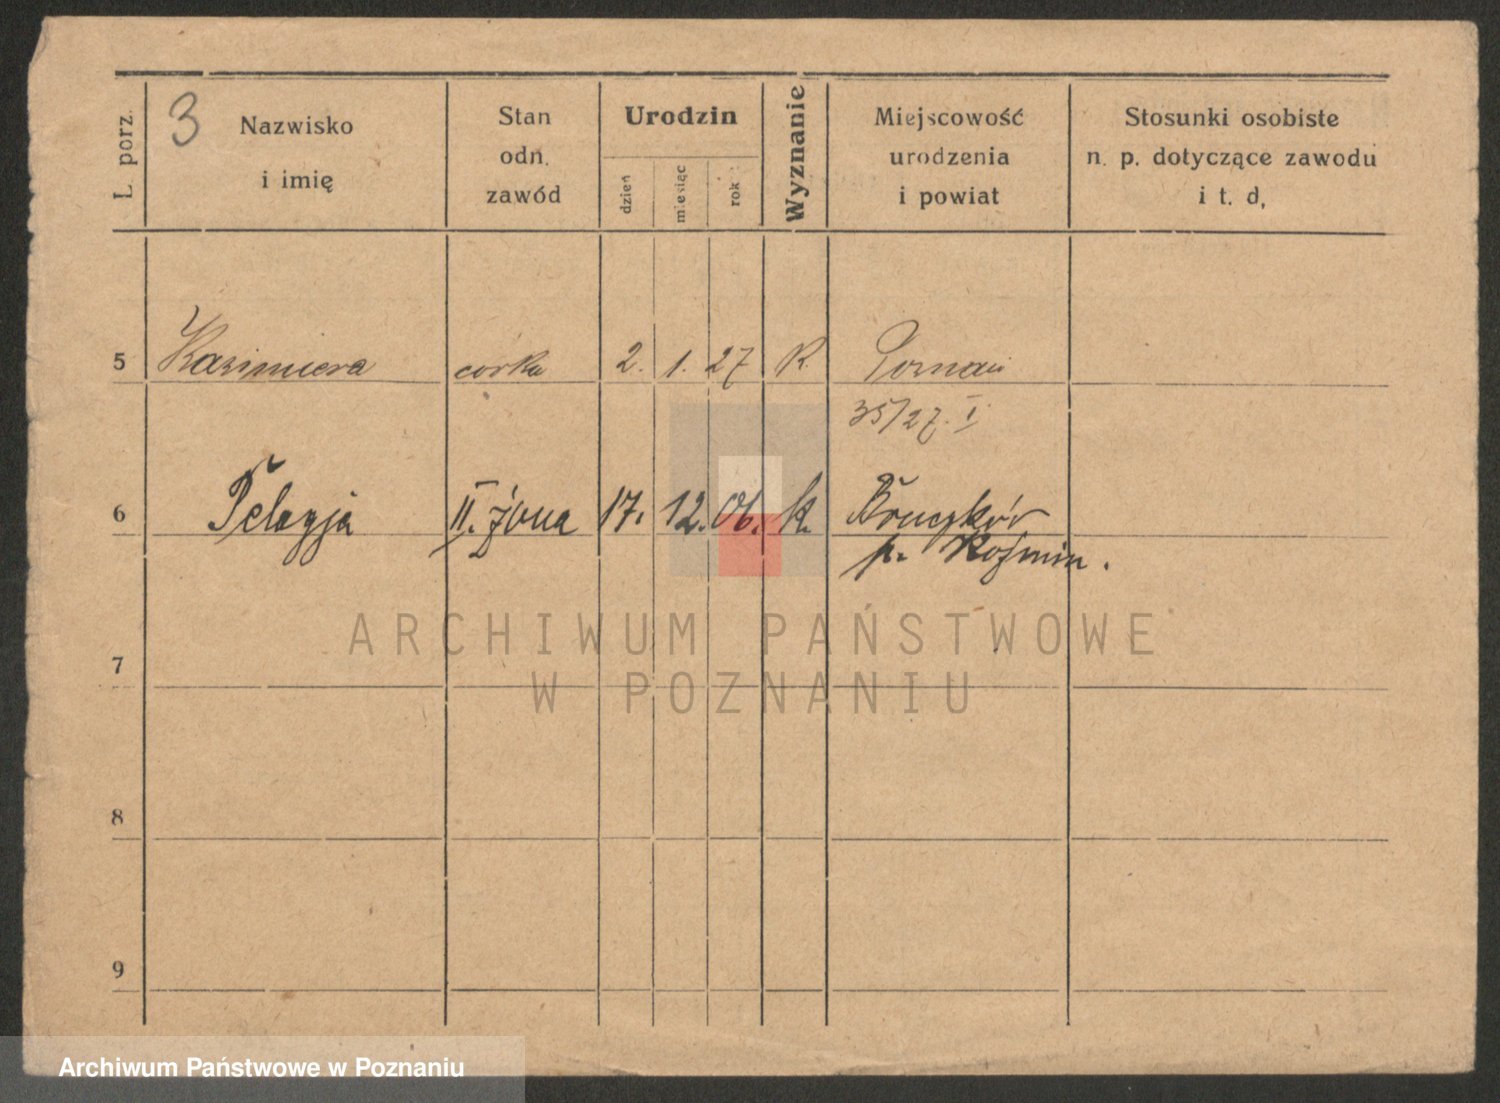 L. porz.
3
Nazwisko
i imię
Stan
odn.
zawód
Urodzin
dzień
miesiąc
rok
Wyznanie
Miejscowość
urodzenia
i powiat
Stosunki osobiste
n. p. dotyczące zawodu
i t. d,
5 Kazimiera córka 2. 1. 27 K. Poznań
35/27. I
6 Pelagja II. żona 17. 12. 06. k.
p. Koźmin.
ARCHIWUM PAŃSTWOWE
W POZNANIU
7
8
9
Archiwum Państwowe w Poznaniu